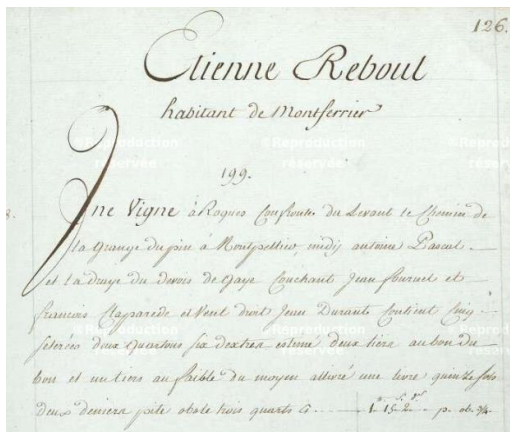 126.
Etienne Reboul
habitant de Montferrier
©Reproduction réservée ©Reproduction réservée
199.
Une Vigne à Roques Confronte du Levant le Chemin de
la Grange du pin à Montpellier, midy antoine Pascal
et la draye du devois de Gaye Couchant Jean fournel et
francois Claparede et Vent droit Jean Durant Contient Cinq
seterées deux quartons six dextres estimé deux tiers au bon du
bon et un tiers au faible du moyen alivré une livre quinze sols
deux deniers pite obole trois quarts Cy 1 15 2 p. ob. 3/4